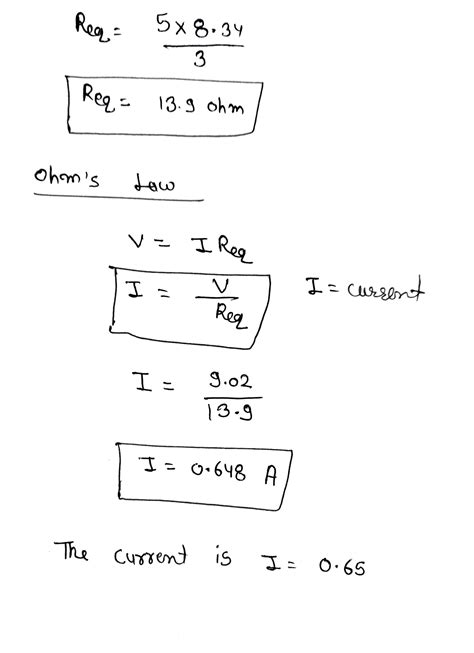 Req = 5 x 8.34 / 3
Req = 13.9 ohm
Ohm's Law
V = I Req
I = V / Req I = current
I = 9.02 / 13.9
I = 0.648 A
The current is I = 0.65